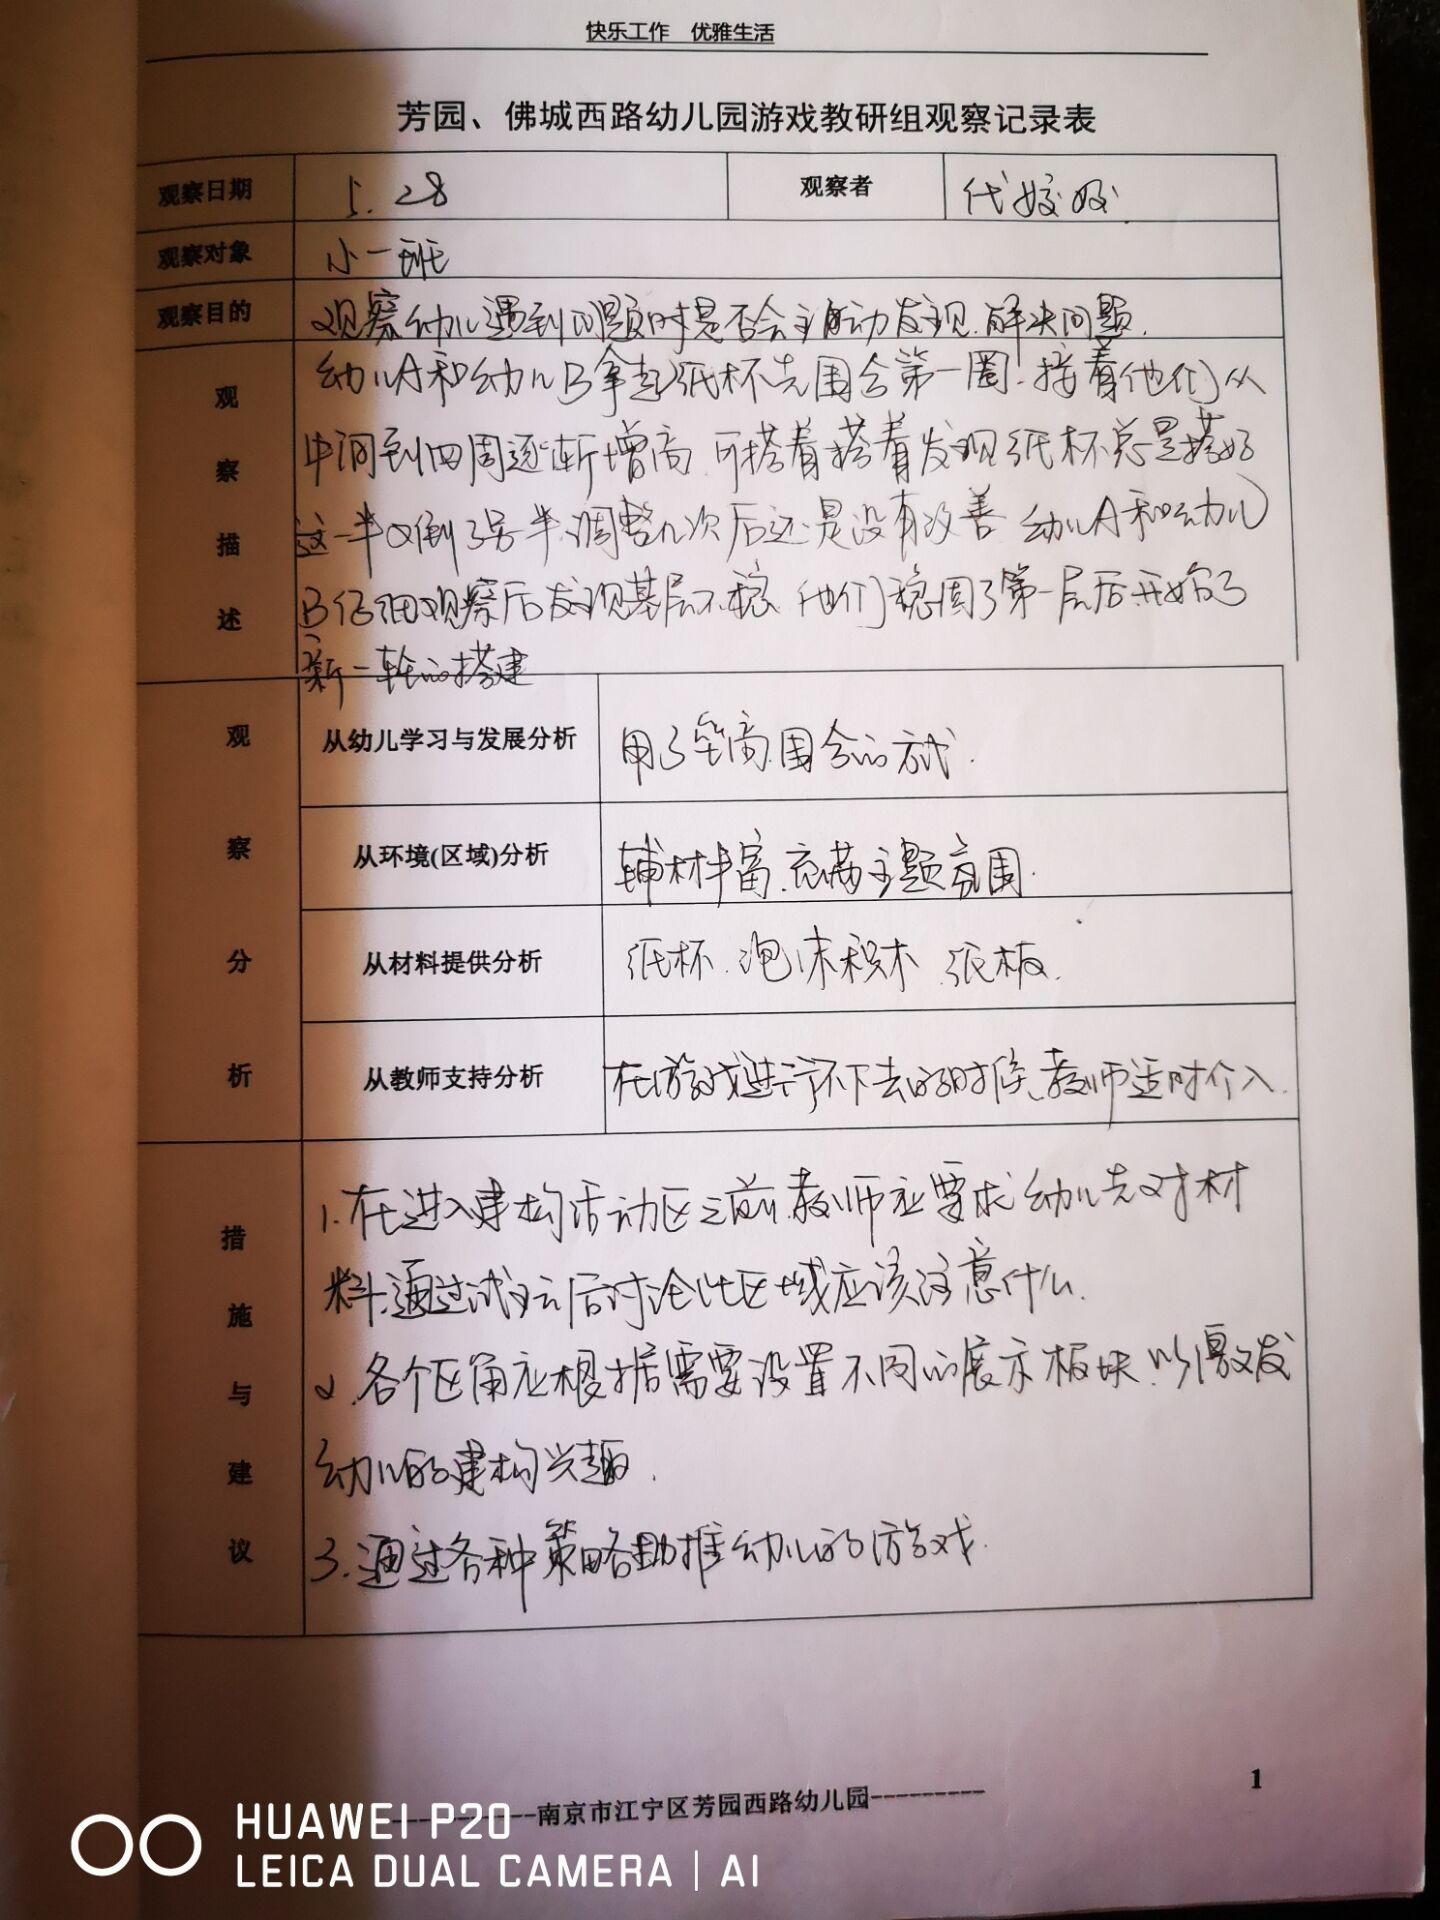 快乐工作 优雅生活
芳园、佛城西路幼儿园游戏教研组观察记录表
观察日期 5.28 观察者 代姣姣
观察对象 小一班
观察目的 观察幼儿遇到问题时是否会主动发现、解决问题.
观察描述
幼儿A和幼儿B拿起纸杯先围合第一圈.接着他们从
中间到四周逐渐增高.可搭着搭着发现纸杯总是搭好
这一半又倒了另一半.调整几次后还是没有改善.幼儿A和幼儿
B仔细观察后发现基层不稳.他们稳固了第一层后.开始了
新一轮的搭建
观察分析
从幼儿学习与发展分析 用了垒高.围合的方式.
从环境(区域)分析 辅材丰富.充满主题氛围.
从材料提供分析 纸杯.泡沫积木.纸板.
从教师支持分析 在游戏进行不下去的时候、教师适时介入.
措施与建议
1.在进入建构活动区之前.教师应要求幼儿先对材
料.通过试玩后讨论此区域应该注意什么.
2.各个区角应根据需要设置不同的展示板块.以激发
幼儿的建构兴趣.
3.通过各种策略助推幼儿的游戏.
1
-----------南京市江宁区芳园西路幼儿园---------
HUAWEI P20
LEICA DUAL CAMERA | AI